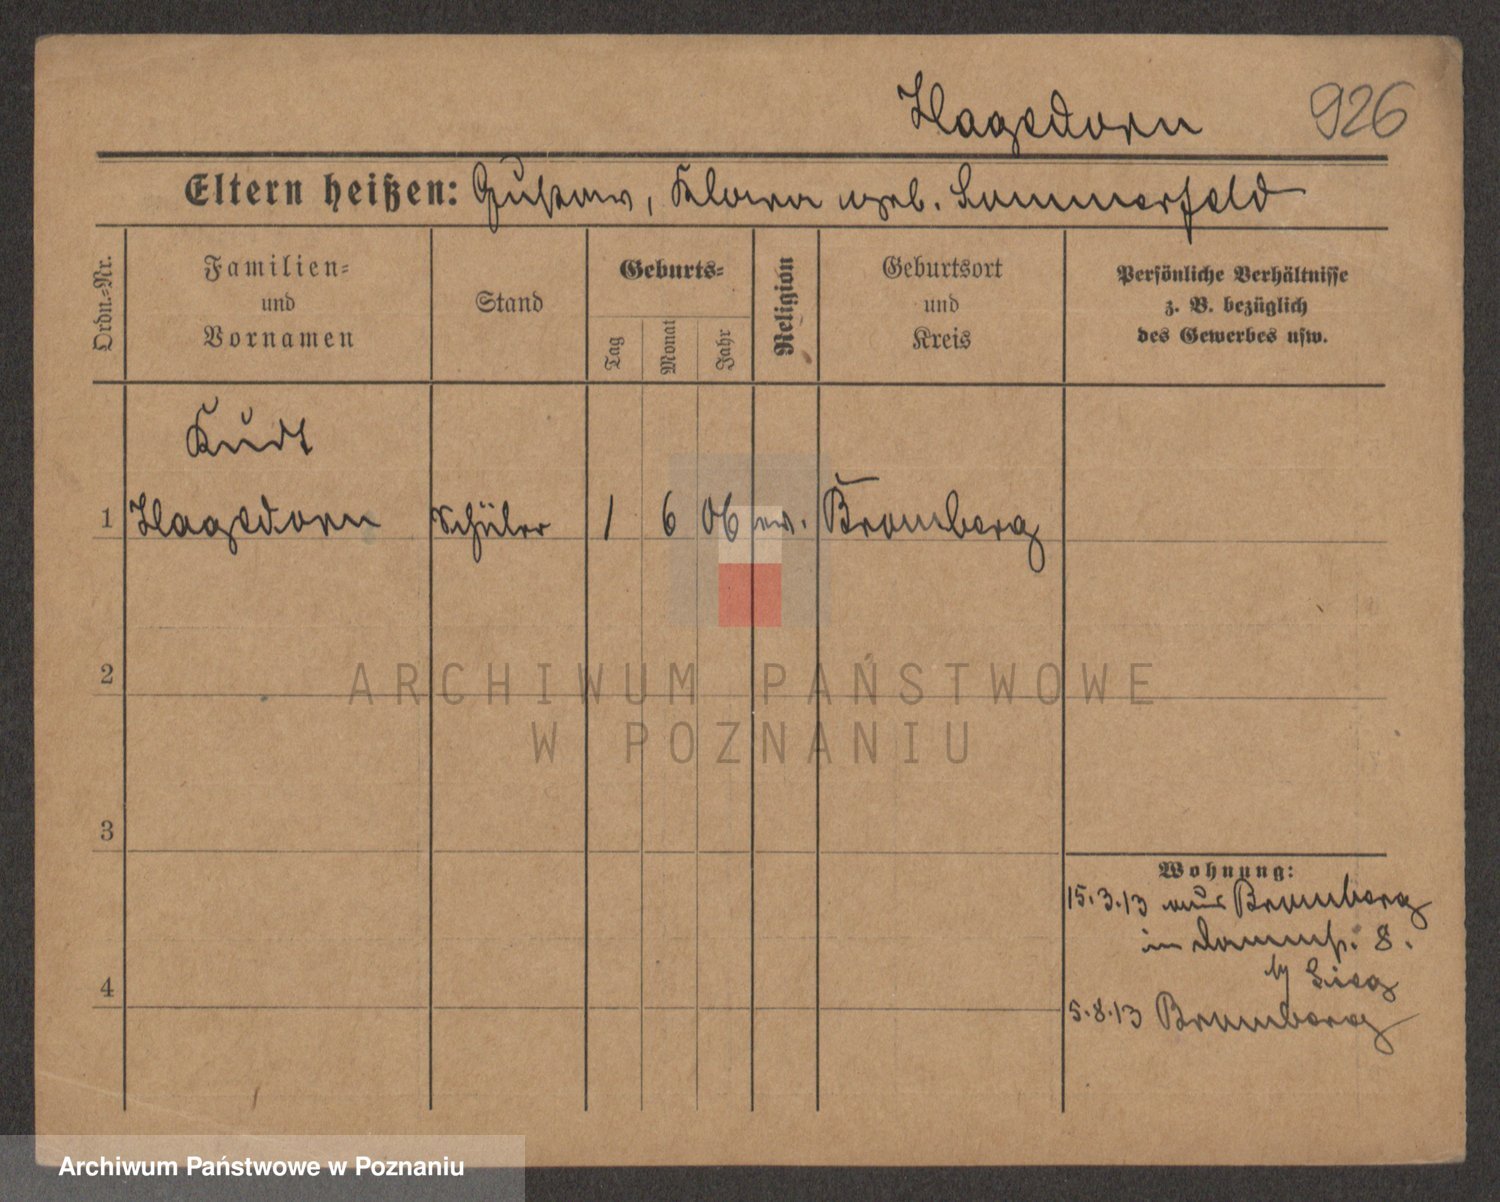 Hagedorn 926
Eltern heißen: Gustav, Klara geb. Sommerfeld
Ordn.-Nr.
Familien-
und
Vornamen
Stand
Geburts-
Tag
Monat
Jahr
Religion
Geburtsort
und
Kreis
Persönliche Verhältnisse
z. B. bezüglich
des Gewerbes usw.
Kurt
1 Hagedorn Schüler 1 6 06 ev. Bromberg
2
ARCHIWUM PAŃSTWOWE
W POZNANIU
3
Wohnung:
15.3.13 aus Bromberg
in 8.
4
5.8.13 Bromberg
Archiwum Państwowe w Poznaniu